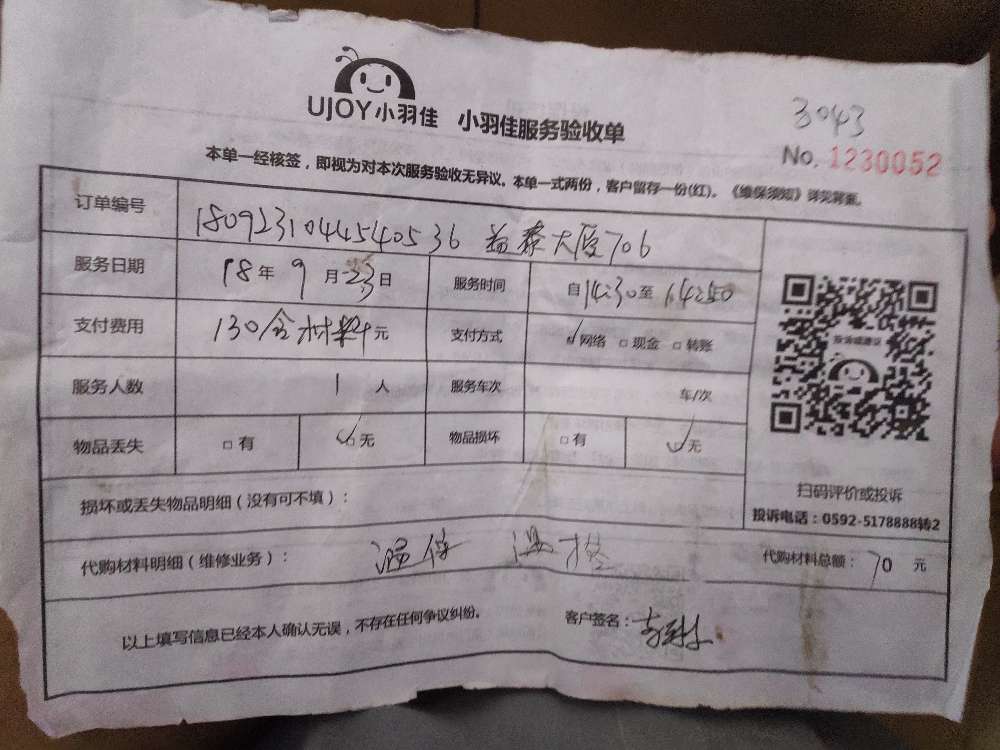 UJOY小羽佳 小羽佳服务验收单
3043
No. 1230052
本单一经核签，即视为对本次服务验收无异议。本单一式两份，客户留存一份(红)。《维保须知》详见背面。
订单编号 1809231044540536 益泰大厦706
服务日期 18年9月23日 服务时间 自14:30至14:50
支付费用 130含材料元 支付方式 ☑网络 □现金 □转账
服务人数 1人 服务车次 车/次
物品丢失 □有 ☑无 物品损坏 □有 ☑无
损坏或丢失物品明细（没有可不填）：
投诉或建议
扫码评价或投诉
投诉电话：0592-5178888转2
代购材料明细（维修业务）： 温控 代购材料总额：70元
以上填写信息已经本人确认无误，不存在任何争议纠纷。 客户签名：